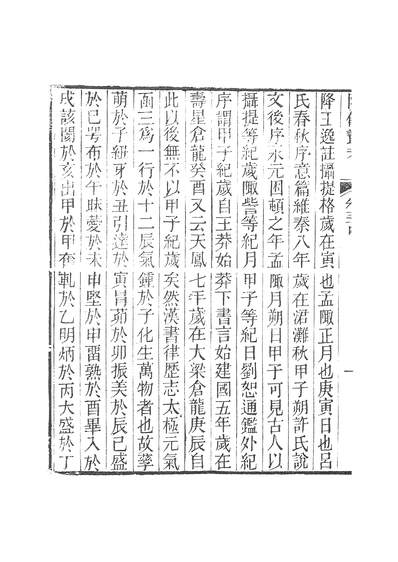 降王逸註攝提格歲在寅也孟陬正月也庚寅日也呂
氏春秋序意篇維秦八年歲在涒灘秋甲子朔許氏說
文後序永元困頓之年孟陬月朔日甲子可見古人以
攝提等紀歲陬訾等紀月甲子等紀日劉恕通鑑外紀
序謂甲子紀歲自王莽始莽下書言始建國五年歲在
壽星倉龍癸酉又云天鳳七年歲在大梁倉龍庚辰自
此以後無不以甲子紀歲矣然漢書律歷志太極元氣
函三爲一行於十二辰氣鍾於子化生萬物者也故孳
萌於子紐牙於丑引達於寅冒茆於卯振美於辰已盛
於巳咢布於午昧薆於未申堅於申畱熟於酉畢入於
戌該閡於亥出甲於甲奮軋於乙明炳於丙大盛於丁